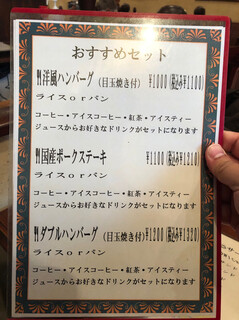 おすすめセット
洋風ハンバーグ(目玉焼き付)¥1000(税込み¥1100)
ライスorパン
コーヒー・アイスコーヒー・紅茶・アイスティー
ジュースからお好きなドリンクがセットになります
国産ポークステーキ ¥1100(税込み¥1210)
ライスorパン
コーヒー・アイスコーヒー・紅茶・アイスティー
ジュースからお好きなドリンクがセットになります
ダブルハンバーグ(目玉焼き付)¥1200(税込み¥1320)
ライスorパン
コーヒー・アイスコーヒー・紅茶・アイスティー
ジュースからお好きなドリンクがセットになります